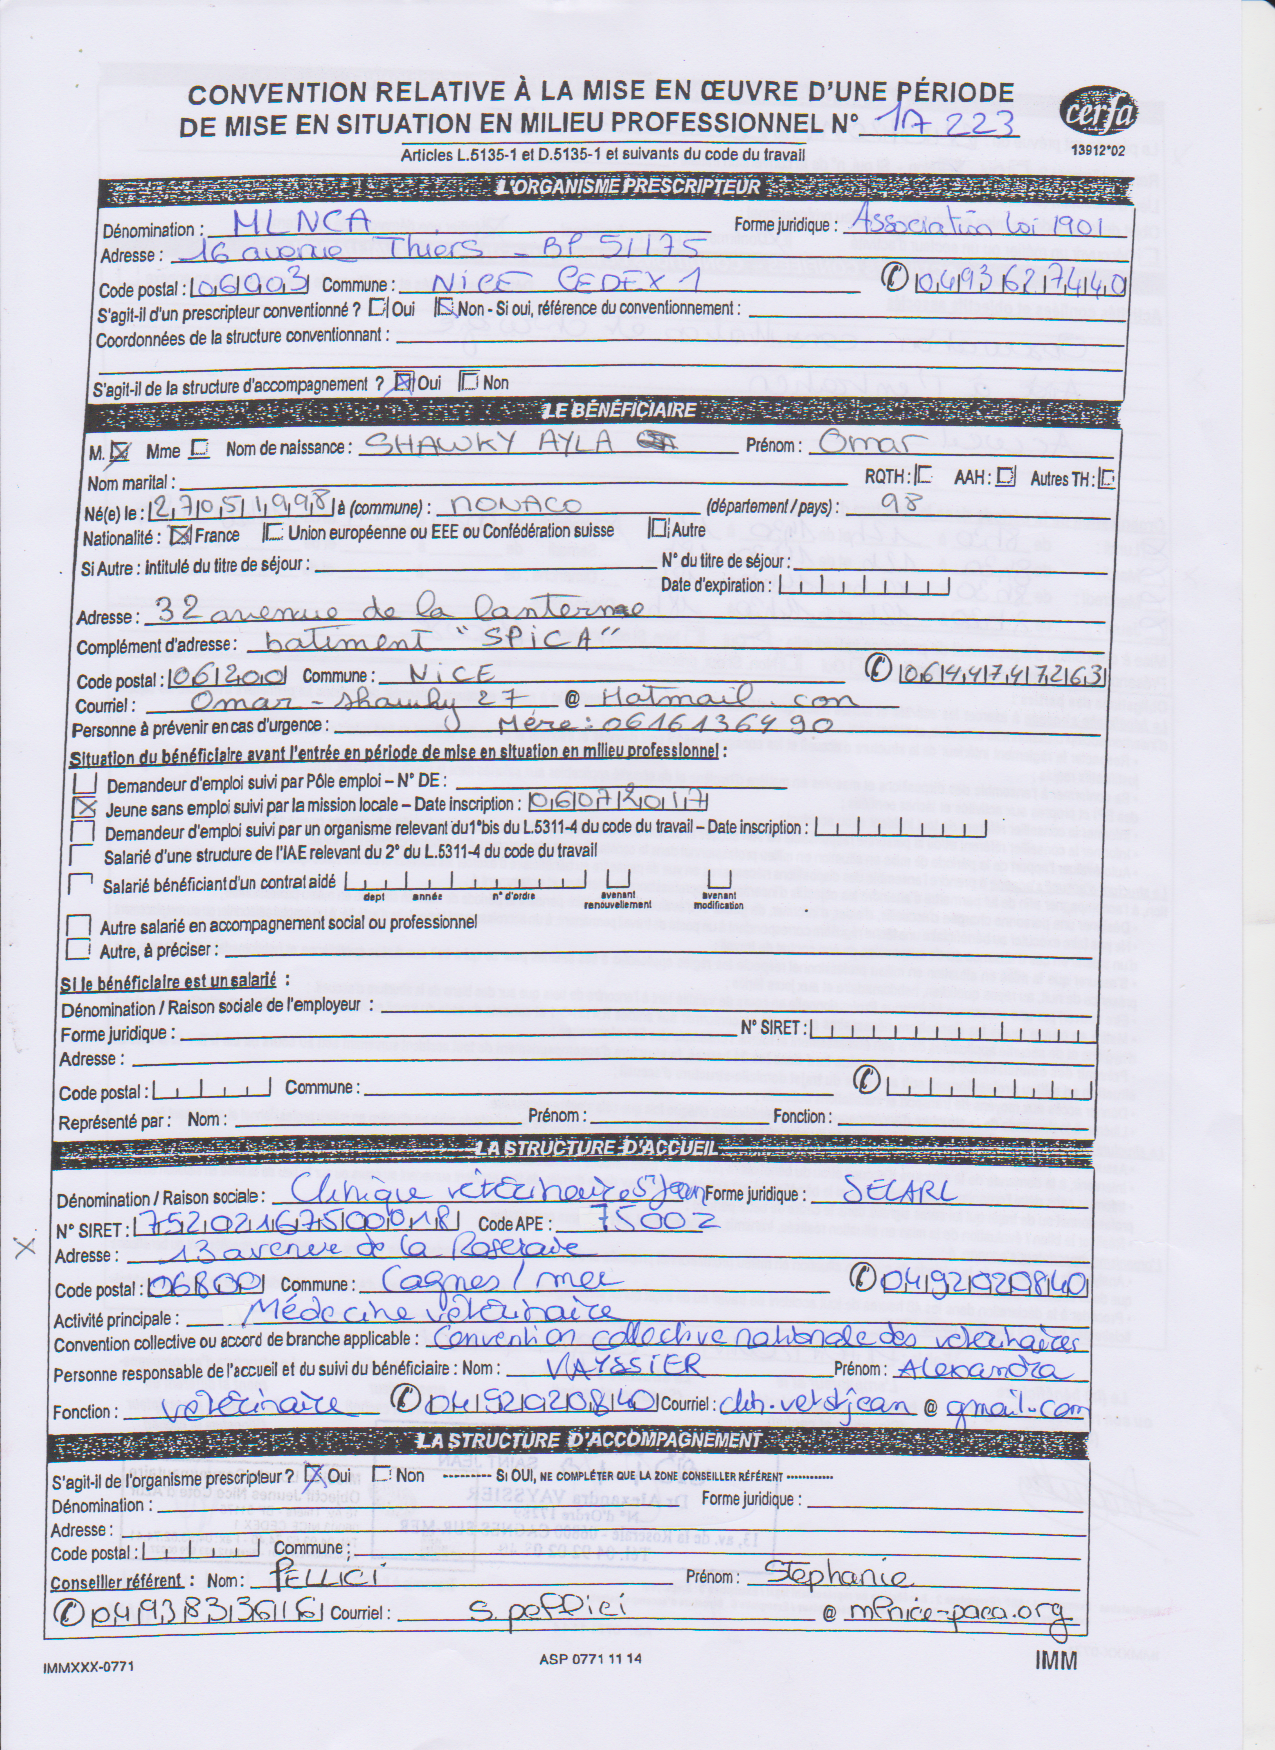 CONVENTION RELATIVE À LA MISE EN ŒUVRE D'UNE PÉRIODE
DE MISE EN SITUATION EN MILIEU PROFESSIONNEL N° 17 223
cerfa
13912*02
Articles L.5135-1 et D.5135-1 et suivants du code du travail
L'ORGANISME PRESCRIPTEUR
Dénomination : MLNCA Forme juridique : Association Loi 1901
Adresse : 16 avenue Thiers - BP 51175
Code postal : 06003 Commune : NICE CEDEX 1 0493627440
S'agit-il d'un prescripteur conventionné ? Oui Non - Si oui, référence du conventionnement :
Coordonnées de la structure conventionnant :
S'agit-il de la structure d'accompagnement ? Oui Non
LE BÉNÉFICIAIRE
M. Mme Nom de naissance : SHAWKY AYLA Prénom : Omar
Nom marital : RQTH : AAH : Autres TH :
Né(e) le : 27051998 à (commune) : MONACO (département / pays) : 98
Nationalité : France Union européenne ou EEE ou Confédération suisse Autre
Si Autre : intitulé du titre de séjour : N° du titre de séjour :
Date d'expiration :
Adresse : 32 avenue de la lanterne
Complément d'adresse : batiment "SPICA"
Code postal : 06200 Commune : NICE 0644747263
Courriel : Omar-shawky27 @ Hotmail.com
Personne à prévenir en cas d'urgence : Mére : 0616136490
Situation du bénéficiaire avant l'entrée en période de mise en situation en milieu professionnel :
Demandeur d'emploi suivi par Pôle emploi – N° DE :
Jeune sans emploi suivi par la mission locale – Date inscription : 06072017
Demandeur d'emploi suivi par un organisme relevant du 1°bis du L.5311-4 du code du travail – Date inscription :
Salarié d'une structure de l'IAE relevant du 2° du L.5311-4 du code du travail
Salarié bénéficiant d'un contrat aidé
dept année n° d'ordre avenant renouvellement avenant modification
Autre salarié en accompagnement social ou professionnel
Autre, à préciser :
Si le bénéficiaire est un salarié :
Dénomination / Raison sociale de l'employeur :
Forme juridique : N° SIRET :
Adresse :
Code postal : Commune :
Représenté par : Nom : Prénom : Fonction :
LA STRUCTURE D'ACCUEIL
Dénomination / Raison sociale : Clinique vétérinaire St Jean Forme juridique : SELARL
N° SIRET : 75202167500018 Code APE : 7500Z
Adresse : 13 avenue de la Roseraie
Code postal : 06800 Commune : Cagnes / mer 0492020840
Activité principale : Médecine vétérinaire
Convention collective ou accord de branche applicable : Convention collective nationale des vétérinaires
Personne responsable de l'accueil et du suivi du bénéficiaire : Nom : VAYSSIER Prénom : Alexandra
Fonction : vétérinaire 0492020840 Courriel : clin.vetstjean @ gmail.com
LA STRUCTURE D'ACCOMPAGNEMENT
S'agit-il de l'organisme prescripteur ? Oui Non --------- SI OUI, NE COMPLÉTER QUE LA ZONE CONSEILLER RÉFÉRENT -----------
Dénomination : Forme juridique :
Adresse :
Code postal : Commune :
Conseiller référent : Nom : PELLICI Prénom : Stephanie
0493833616 Courriel : s.pellici @ mlnice-paca.org
IMMXXX-0771 ASP 0771 11 14 IMM